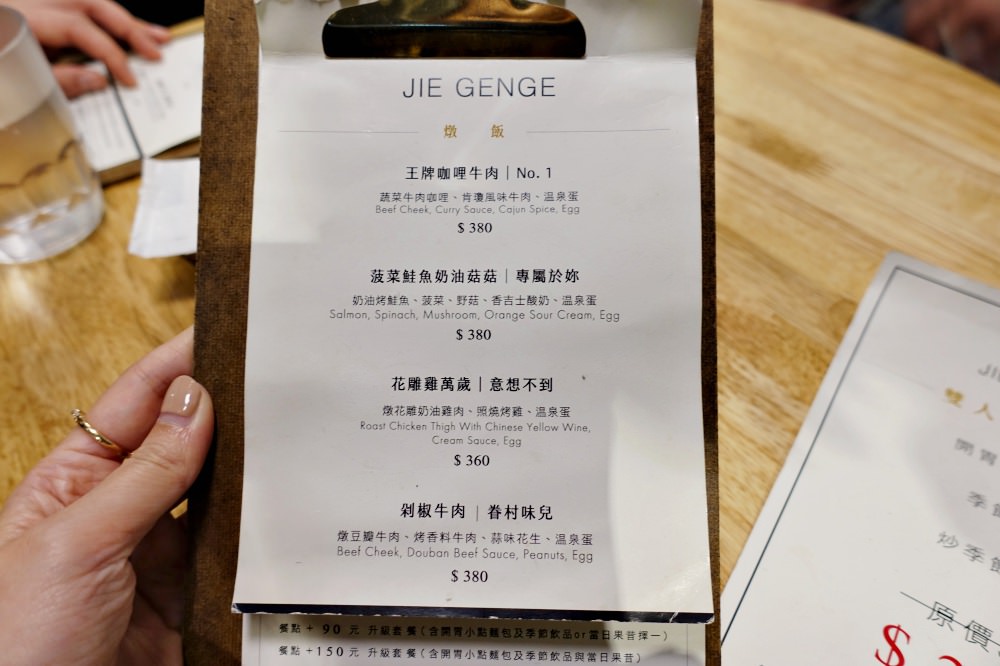 JIE GENGE
燉 飯
王牌咖哩牛肉｜No. 1
蔬菜牛肉咖哩、肯瓊風味牛肉、温泉蛋
Beef Cheek, Curry Sauce, Cajun Spice, Egg
$ 380
菠菜鮭魚奶油菇菇｜專屬於妳
奶油烤鮭魚、菠菜、野菇、香吉士酸奶、温泉蛋
Salmon, Spinach, Mushroom, Orange Sour Cream, Egg
$ 380
花雕雞萬歲｜意想不到
燉花雕奶油雞肉、照燒烤雞、温泉蛋
Roast Chicken Thigh With Chinese Yellow Wine,
Cream Sauce, Egg
$ 360
剁椒牛肉｜眷村味兒
燉豆瓣牛肉、烤香料牛肉、蒜味花生、温泉蛋
Beef Cheek, Douban Beef Sauce, Peanuts, Egg
$ 380
餐點 + 90 元 升級套餐（含開胃小點麵包及季節飲品or當日果昔擇一）
餐點 +150 元 升級套餐（含開胃小點麵包及季節飲品與當日果昔）
雙 人
開胃
季節
炒季節
原價
$